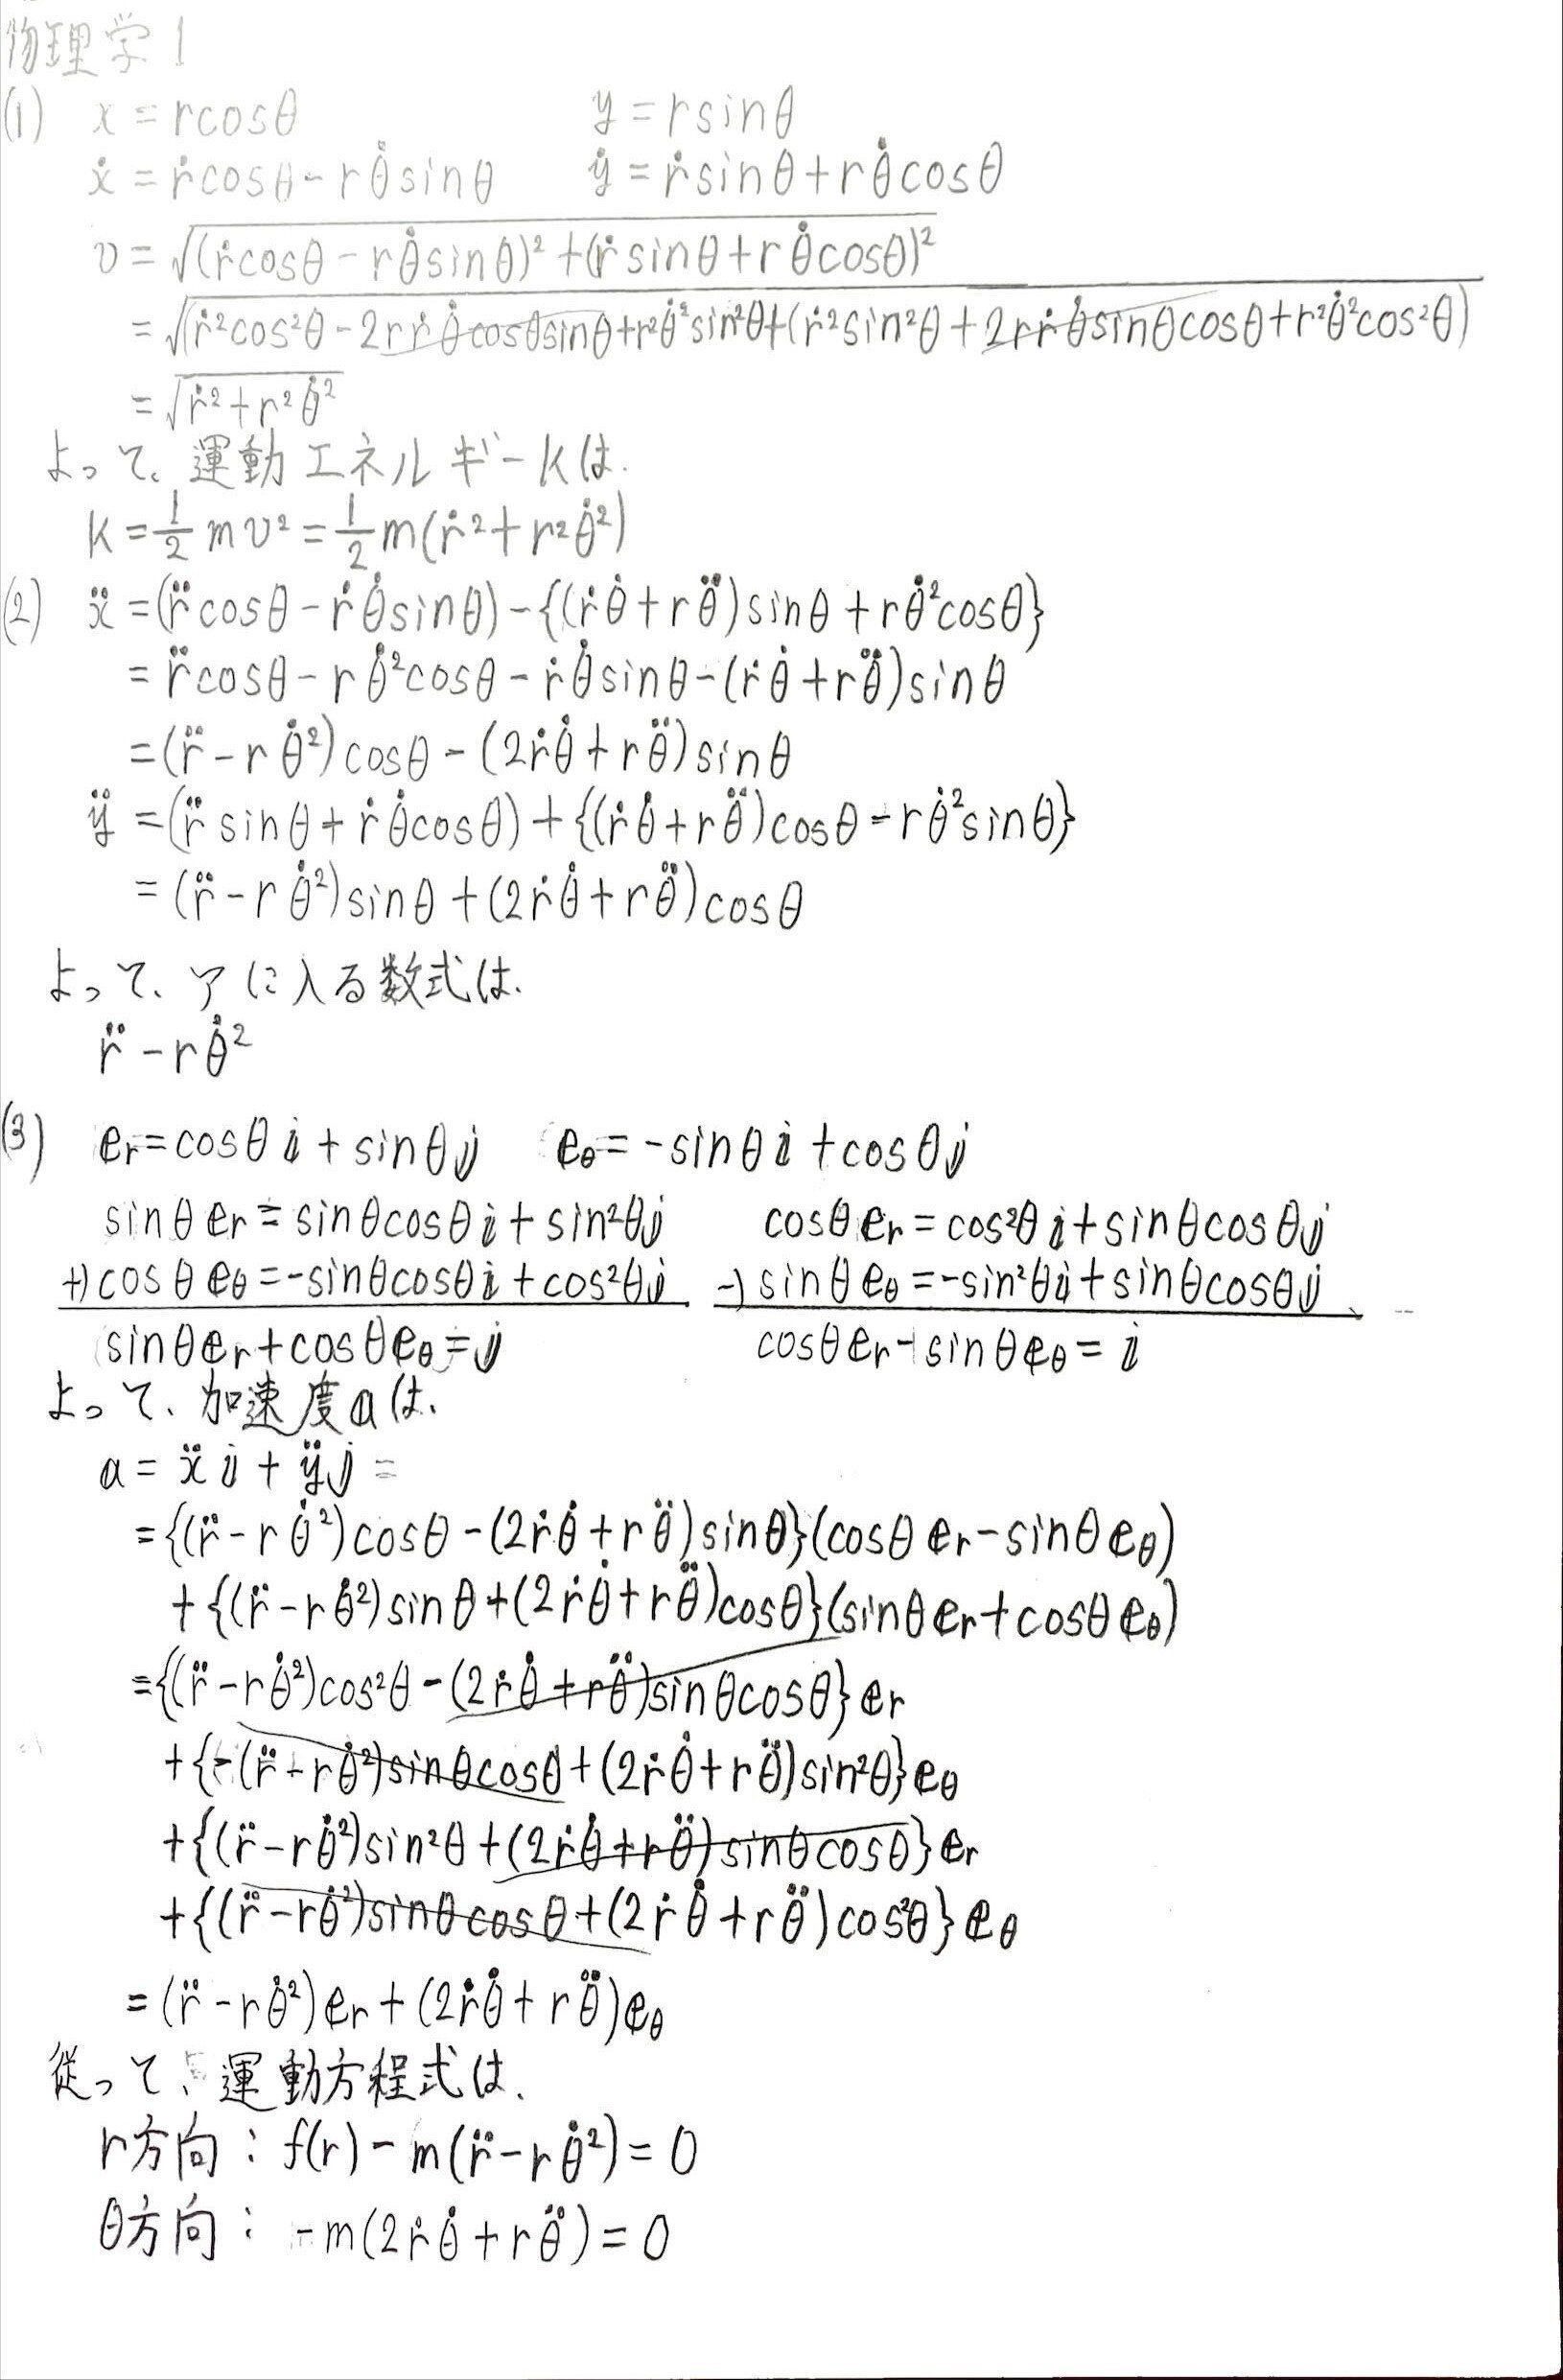 物理学1
(1) x = rcosθ y = rsinθ
ẋ = ṙcosθ - rθ̇sinθ ẏ = ṙsinθ + rθ̇cosθ
v = √((ṙcosθ - rθ̇sinθ)² + (ṙsinθ + rθ̇cosθ)²)
= √(ṙ²cos²θ - 2rṙθ̇cosθsinθ + r²θ̇²sin²θ + (ṙ²sin²θ + 2rṙθ̇sinθcosθ + r²θ̇²cos²θ)
= √(ṙ² + r²θ̇²)
よって、運動エネルギーKは.
K = 1/2 mv² = 1/2 m(ṙ² + r²θ̇²)
(2) ẍ = (r̈cosθ - ṙθ̇sinθ) - {(ṙθ̇ + rθ̈)sinθ + rθ̇²cosθ}
= r̈cosθ - rθ̇²cosθ - ṙθ̇sinθ - (ṙθ̇ + rθ̈)sinθ
= (r̈ - rθ̇²)cosθ - (2ṙθ̇ + rθ̈)sinθ
ÿ = (r̈sinθ + ṙθ̇cosθ) + {(ṙθ̇ + rθ̈)cosθ - rθ̇²sinθ}
= (r̈ - rθ̇²)sinθ + (2ṙθ̇ + rθ̈)cosθ
よって、アに入る数式は、
r̈ - rθ̇²
(3) er = cosθ i + sinθ j eθ = -sinθ i + cosθ j
sinθ er = sinθcosθ i + sin²θ j cosθ er = cos²θ i + sinθcosθ j
+) cosθ eθ = -sinθcosθ i + cos²θ j -) sinθ eθ = -sin²θ i + sinθcosθ j
sinθ er + cosθ eθ = j cosθ er - sinθ eθ = i
よって、加速度aは、
a = ẍ i + ÿ j =
= {(r̈ - rθ̇²)cosθ - (2ṙθ̇ + rθ̈)sinθ}(cosθ er - sinθ eθ)
+ {(r̈ - rθ̇²)sinθ + (2ṙθ̇ + rθ̈)cosθ}(sinθ er + cosθ eθ)
= {(r̈ - rθ̇²)cos²θ - (2ṙθ̇ + rθ̈)sinθcosθ} er
+ {-(r̈ - rθ̇²)sinθcosθ + (2ṙθ̇ + rθ̈)sin²θ} eθ
+ {(r̈ - rθ̇²)sin²θ + (2ṙθ̇ + rθ̈)sinθcosθ} er
+ {(r̈ - rθ̇²)sinθcosθ + (2ṙθ̇ + rθ̈)cos²θ} eθ
= (r̈ - rθ̇²) er + (2ṙθ̇ + rθ̈) eθ
従って、運動方程式は、
r方向 : f(r) - m(r̈ - rθ̇²) = 0
θ方向 : -m(2ṙθ̇ + rθ̈) = 0